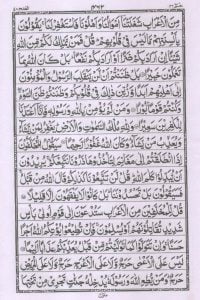 ٤٦٢
مِنَ الْاَعْرَابِ شَغَلَتْنَآ اَمْوَالُنَا وَاَهْلُوْنَا فَاسْتَغْفِرْ لَنَا يَقُوْلُوْنَ
بِاَلْسِنَتِهِمْ مَّا لَيْسَ فِيْ قُلُوْبِهِمْ قُلْ فَمَنْ يَّمْلِكُ لَكُمْ مِّنَ اللّٰهِ
شَيْئًا اِنْ اَرَادَ بِكُمْ ضَرًّا اَوْ اَرَادَ بِكُمْ نَفْعًا بَلْ كَانَ اللّٰهُ بِمَا
تَعْمَلُوْنَ خَبِيْرًا بَلْ ظَنَنْتُمْ اَنْ لَّنْ يَّنْقَلِبَ الرَّسُوْلُ وَالْمُؤْمِنُوْنَ
اِلٰٓى اَهْلِيْهِمْ اَبَدًا وَّزُيِّنَ ذٰلِكَ فِيْ قُلُوْبِكُمْ وَظَنَنْتُمْ ظَنَّ السَّوْءِ
وَكُنْتُمْ قَوْمًا بُوْرًا وَمَنْ لَّمْ يُؤْمِنْ بِاللّٰهِ وَرَسُوْلِهٖ فَاِنَّآ اَعْتَدْنَا
لِلْكٰفِرِيْنَ سَعِيْرًا وَلِلّٰهِ مُلْكُ السَّمٰوٰتِ وَالْاَرْضِ يَغْفِرُ لِمَنْ
يَّشَآءُ وَيُعَذِّبُ مَنْ يَّشَآءُ وَكَانَ اللّٰهُ غَفُوْرًا رَّحِيْمًا سَيَقُوْلُ الْمُخَلَّفُوْنَ
اِذَا انْطَلَقْتُمْ اِلٰى مَغَانِمَ لِتَاْخُذُوْهَا ذَرُوْنَا نَتَّبِعْكُمْ يُرِيْدُوْنَ
اَنْ يُّبَدِّلُوْا كَلٰمَ اللّٰهِ قُلْ لَّنْ تَتَّبِعُوْنَا كَذٰلِكُمْ قَالَ اللّٰهُ مِنْ قَبْلُ
فَسَيَقُوْلُوْنَ بَلْ تَحْسُدُوْنَنَا بَلْ كَانُوْا لَا يَفْقَهُوْنَ اِلَّا قَلِيْلًا
قُلْ لِّلْمُخَلَّفِيْنَ مِنَ الْاَعْرَابِ سَتُدْعَوْنَ اِلٰى قَوْمٍ اُولِيْ بَاْسٍ
شَدِيْدٍ تُقَاتِلُوْنَهُمْ اَوْ يُسْلِمُوْنَ فَاِنْ تُطِيْعُوْا يُؤْتِكُمُ اللّٰهُ اَجْرًا
حَسَنًا وَاِنْ تَتَوَلَّوْا كَمَا تَوَلَّيْتُمْ مِّنْ قَبْلُ يُعَذِّبْكُمْ عَذَابًا اَلِيْمًا
لَيْسَ عَلَى الْاَعْمٰى حَرَجٌ وَّلَا عَلَى الْاَعْرَجِ حَرَجٌ وَّلَا عَلَى الْمَرِيْضِ
حَرَجٌ وَمَنْ يُّطِعِ اللّٰهَ وَرَسُوْلَهٗ يُدْخِلْهُ جَنّٰتٍ تَجْرِيْ مِنْ تَحْتِهَا